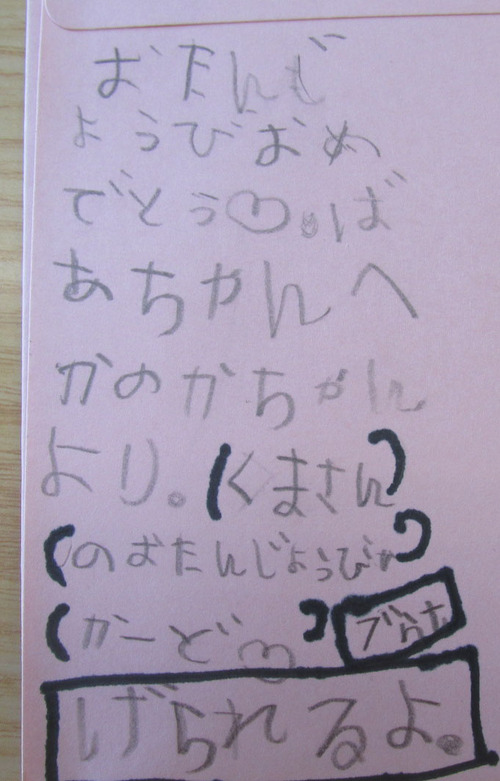 おたんじ
ょうびおめ
でとう♡。ば
あちゃんへ
かのかちゃん
より。(くまさん)
(のおたんじょうびか)
(かーど♡) ぶらさ
げられるよ。